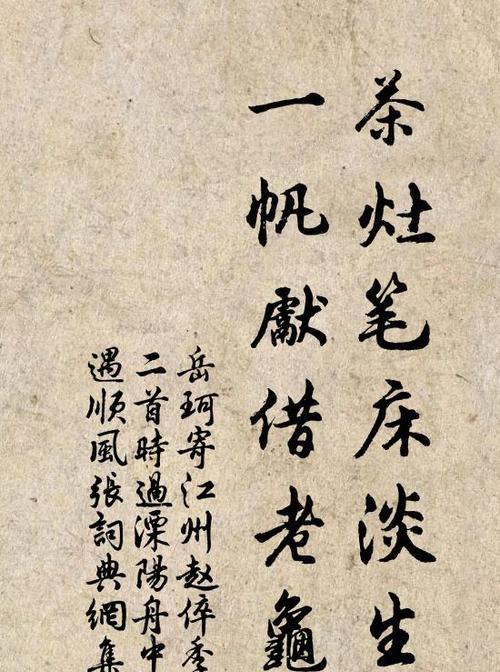 茶灶笔床淡生
一帆獻借老龜
岳珂寄江州赵倅季
二首時過溧陽舟中
遇順風張詞典網集